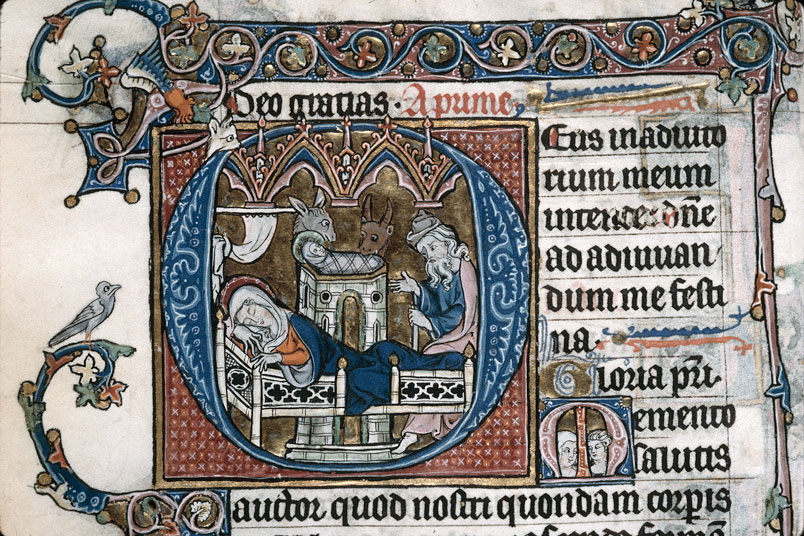 Deo gratias · A prime
Eus in adiuto
rium meum
intende · dn̄e
ad adiuuan
dum me festi
na ·
Gloria pr̄i ·
Memento
salutis
auctor quod nostri quondam corp̄is